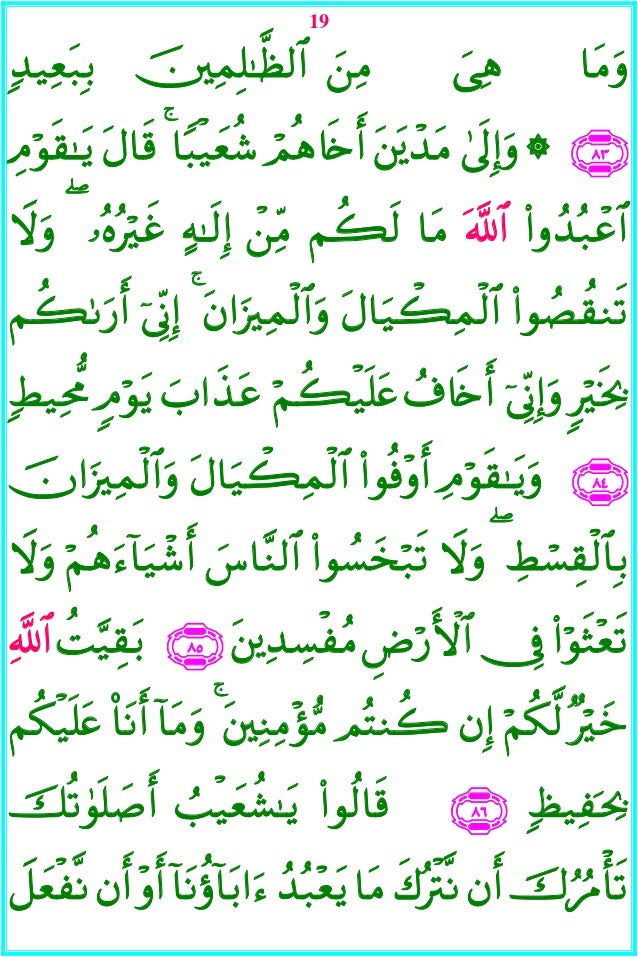 19
وَمَا هِىَ مِنَ ٱلظَّـٰلِمِينَ بِبَعِيدٍ
٨٣ ۞ وَإِلَىٰ مَدْيَنَ أَخَاهُمْ شُعَيْبًا ۚ قَالَ يَـٰقَوْمِ
ٱعْبُدُوا۟ ٱللَّهَ مَا لَكُم مِّنْ إِلَـٰهٍ غَيْرُهُۥ ۖ وَلَا
تَنقُصُوا۟ ٱلْمِكْيَالَ وَٱلْمِيزَانَ ۚ إِنِّىٓ أَرَىٰكُم
بِخَيْرٍ وَإِنِّىٓ أَخَافُ عَلَيْكُمْ عَذَابَ يَوْمٍ مُّحِيطٍ
٨٤ وَيَـٰقَوْمِ أَوْفُوا۟ ٱلْمِكْيَالَ وَٱلْمِيزَانَ
بِٱلْقِسْطِ ۖ وَلَا تَبْخَسُوا۟ ٱلنَّاسَ أَشْيَآءَهُمْ وَلَا
تَعْثَوْا۟ فِى ٱلْأَرْضِ مُفْسِدِينَ ٨٥ بَقِيَّتُ ٱللَّهِ
خَيْرٌ لَّكُمْ إِن كُنتُم مُّؤْمِنِينَ ۚ وَمَآ أَنَا۠ عَلَيْكُم
بِحَفِيظٍ ٨٦ قَالُوا۟ يَـٰشُعَيْبُ أَصَلَوٰتُكَ
تَأْمُرُكَ أَن نَّتْرُكَ مَا يَعْبُدُ ءَابَآؤُنَآ أَوْ أَن نَّفْعَلَ